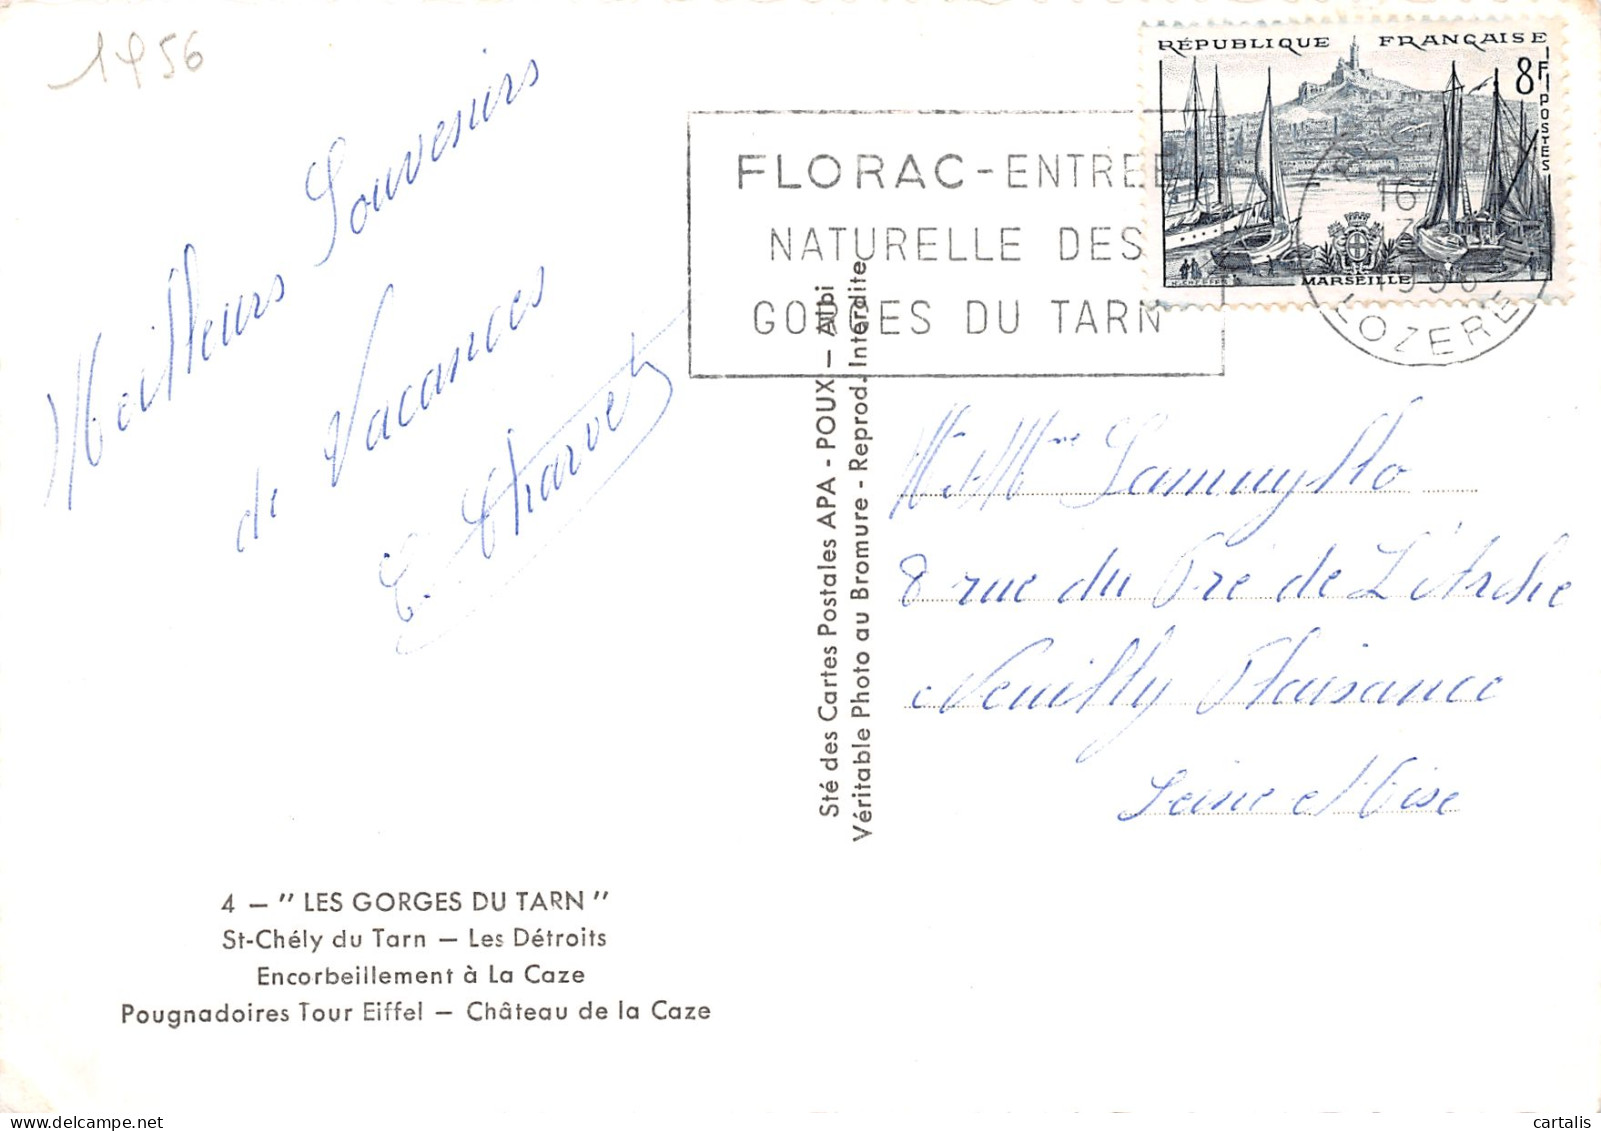 1956
Meilleurs Souvenirs
de Vacances
E. Charvet
RÉPUBLIQUE FRANÇAISE
8F
POSTES
MARSEILLE
FLORAC-ENTREE
NATURELLE DES
GORGES DU TARN
16
1956
LOZERE
Sté des Cartes Postales APA - POUX — Albi
Véritable Photo au Bromure - Reprod. Interdite
Mr et Mme
8 rue du Pré de L'Arche
Neuilly Plaisance
Seine et Oise
4 — " LES GORGES DU TARN "
St-Chély du Tarn — Les Détroits
Encorbeillement à La Caze
Pougnadoires Tour Eiffel — Château de la Caze
cartalis